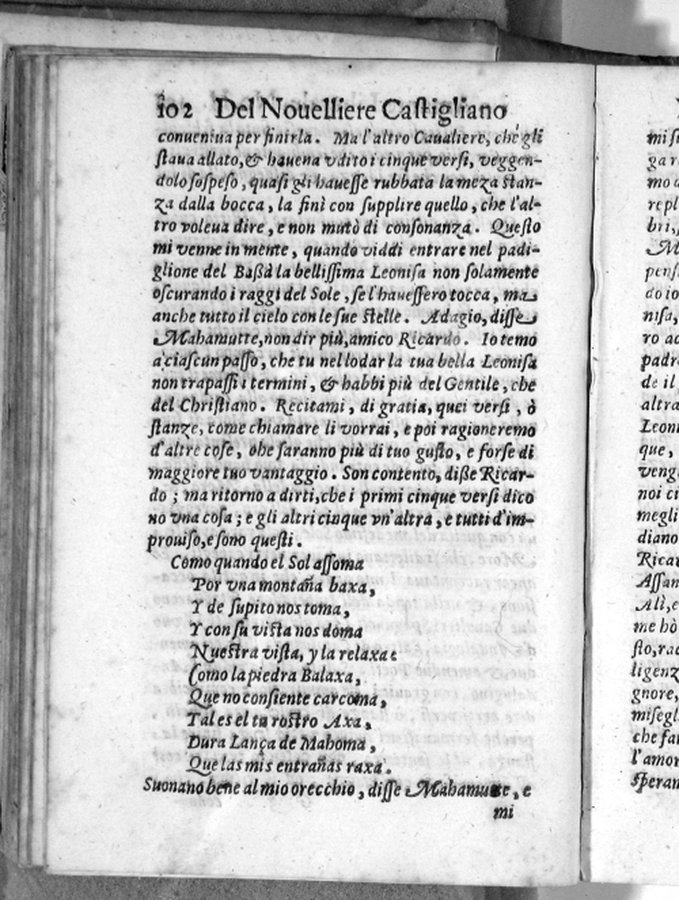 102 Del Nouelliere Castigliano
conueniua per finirla. Ma l'altro Caualiere, che gli
staua allato, & haueua vdito i cinque versi, veggen-
dolo sospeso, quasi gli hauesse rubbata la meza stan-
za dalla bocca, la finì con supplire quello, che l'al-
tro voleua dire, e non mutò di consonanza. Questo
mi venne in mente, quando viddi entrare nel padi-
glione del Bassà la bellissima Leonisa non solamente
oscurando i raggi del Sole, se l'hauessero tocca, ma
anche tutto il cielo con le sue stelle. Adagio, disse
Mahamutte, non dir più, amico Ricardo. Io temo
a ciascun passo, che tu nel lodar la tua bella Leonisa
non trapassi i termini, & habbi più del Gentile, che
del Christiano. Recitami, di gratia, quei versi, ò
stanze, come chiamare li vorrai, e poi ragioneremo
d'altre cose, che saranno più di tuo gusto, e forse di
maggiore tuo vantaggio. Son contento, disse Ricar-
do; ma ritorno a dirti, che i primi cinque versi dico
no vna cosa; e gli altri cinque vn'altra, e tutti d'im-
prouiso, e sono questi.
Como quando el Sol assoma
Por vna montaña baxa,
Y de supito nos toma,
Y con su vista nos doma
Nuestra vista, y la relaxa:
Como la piedra Balaxa,
Que no consiente carcoma,
Tal es el tu rostro Axa,
Dura Lança de Mahoma,
Que las mis entrañas raxa.
Suonano bene al mio orecchio, disse Mahamutte, e
mi
mi s
ga r
mo
repl
bri,
M
pens
do io
nisa,
ro ac
padr
de il
altra
Leon
que,
veng
noi ci
megli
diano
Ricar
Assan
Alì, e
me hò
sto, ra
ligenz
gnore,
misegl
che far
l'amor
speran